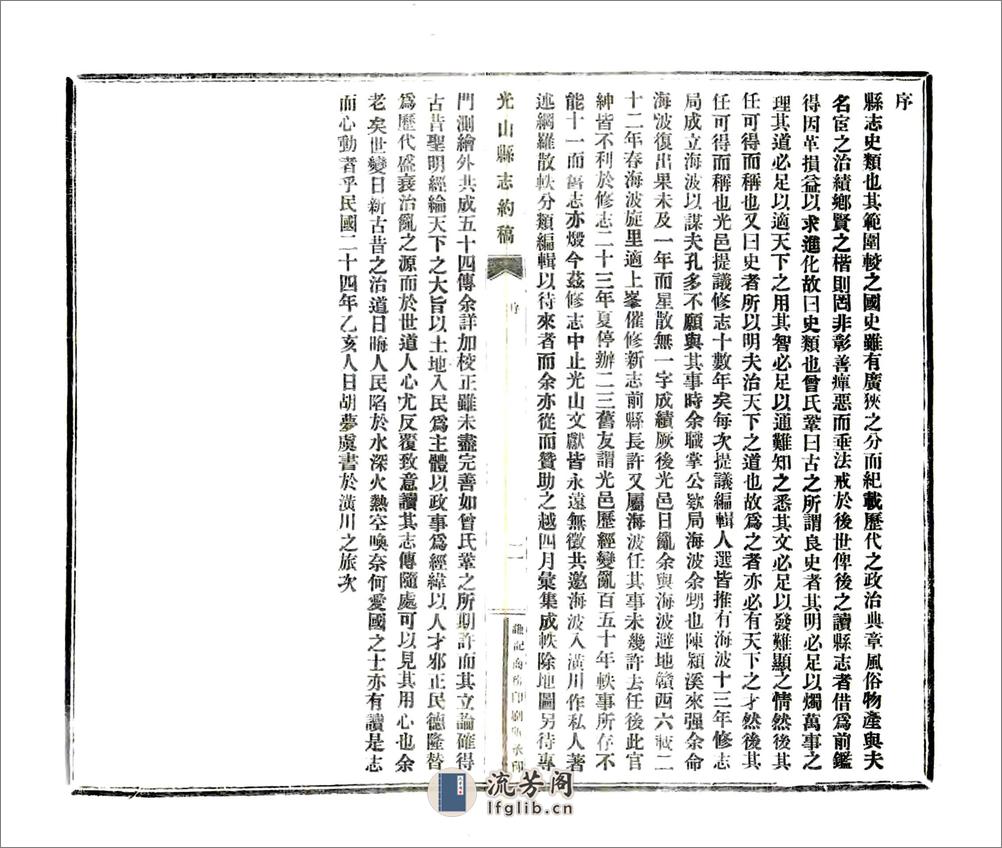 序
縣志史類也其範圍較之國史雖有廣狹之分而紀載歷代之政治典章風俗物產與夫
名宦之治績鄉賢之楷則罔非彰善癉惡而垂法戒於後世俾後之讀縣志者借爲前鑑
得因革損益以求進化故曰史類也曾氏鞏曰古之所謂良史者其明必足以燭萬事之
理其道必足以適天下之用其智必足以通難知之悉其文必足以發難顯之情然後其
任可得而稱也又曰史者所以明夫治天下之道也故爲之者亦必有天下之才然後其
任可得而稱也光邑提議修志十數年矣每次提議編輯人選皆推有海波十三年修志
局成立海波以謀夫孔多不願與其事時余職掌公欵局海波余甥也陳潁溪來强余命
海波復出果未及一年而星散無一字成績厥後光邑日亂余與海波避地贛西六載二
十二年春海波旋里適上峯催修新志前縣長許又屬海波任其事未幾許去任後此官
紳皆不利於修志二十三年夏停辦二三舊友謂光邑歷經變亂百五十年軼事所存不
能十一而舊志亦燬今茲修志中止光山文獻皆永遠無徵共邀海波入潢川作私人著
述網羅散軼分類編輯以待來者而余亦從而贊助之越四月彙集成帙除地圖另待專
光山縣志約稿
序
二
謙記商務印刷所承印
門測繪外共成五十四傳余詳加校正雖未盡完善如曾氏鞏之所期許而其立論確得
古昔聖明經綸天下之大旨以土地人民爲主體以政事爲經緯以人才邪正民德隆替
爲歷代盛衰治亂之源而於世道人心尤反覆致意讀其志傳隨處可以見其用心也余
老矣世變日新古昔之治道日晦人民陷於水深火熱空喚奈何愛國之士亦有讀是志
而心動者乎民國二十四年乙亥人日胡夢虞書於潢川之旅次
流芳阁
lfglib.cn